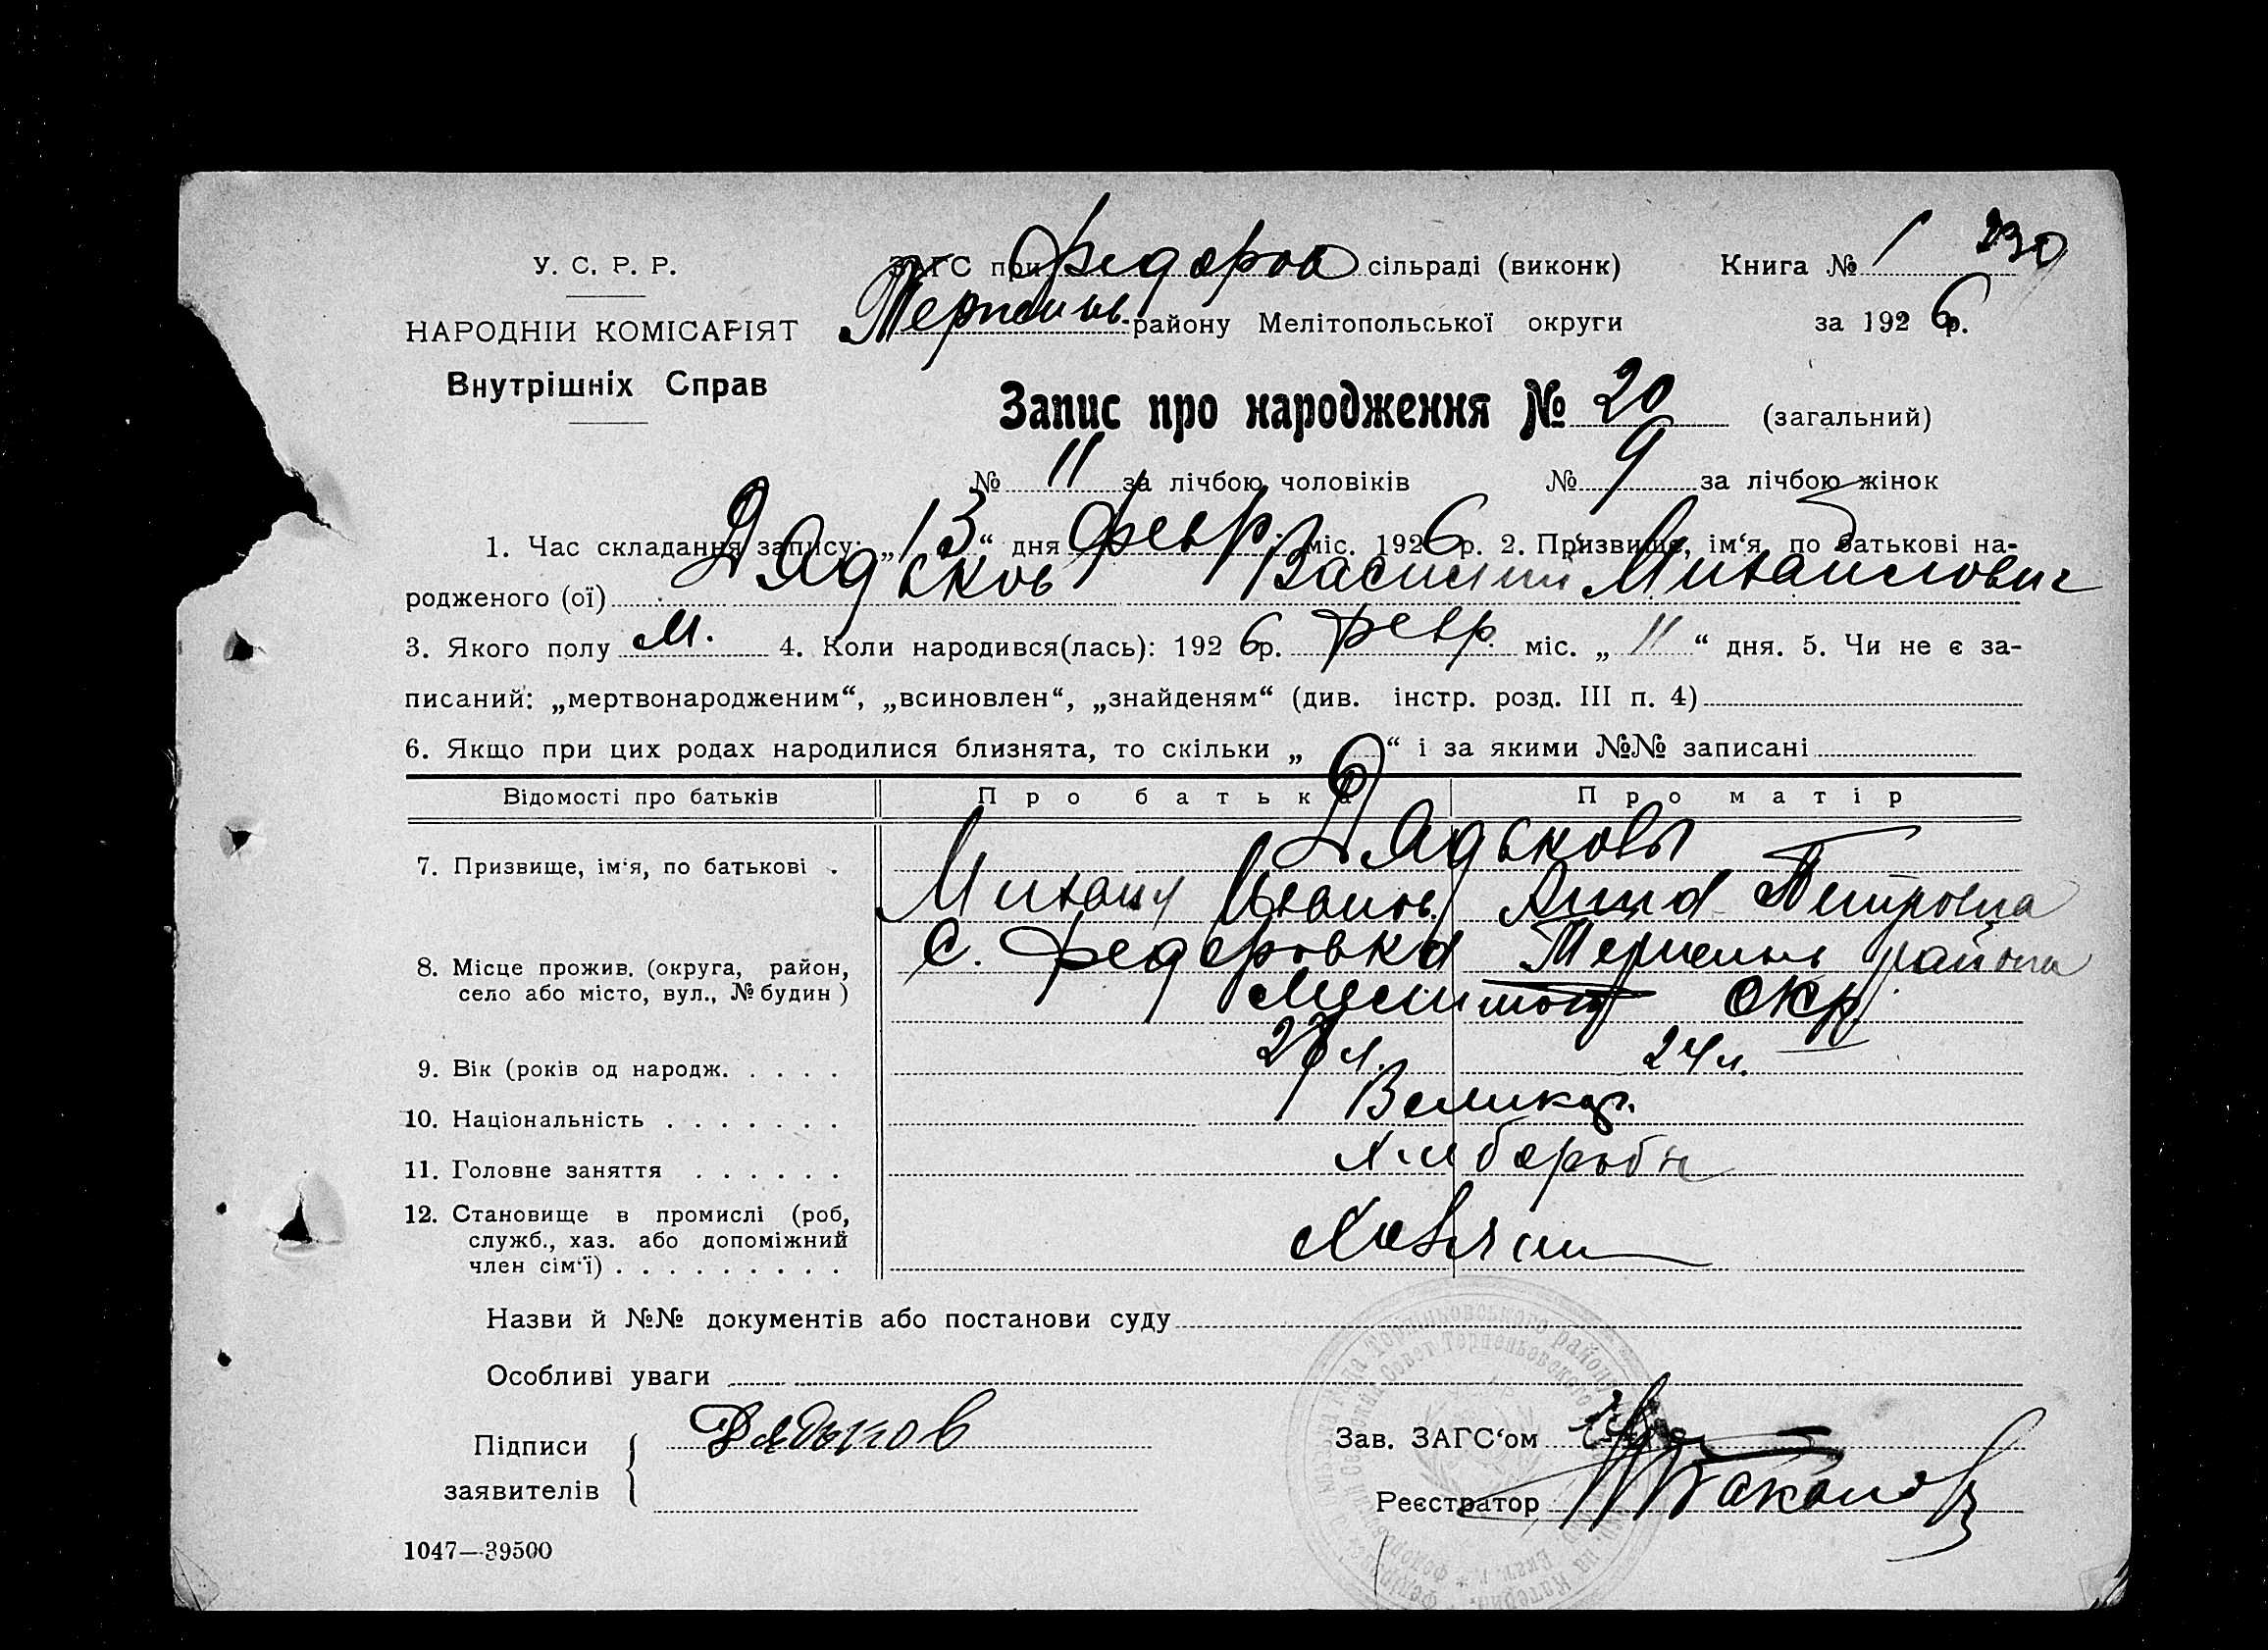 У. С. Р. Р.
НАРОДНІЙ КОМІСАРІЯТ
Внутрішніх Справ
ЗАГС при Федоров сільраді (виконк) Книга № 1 230
Терпеньев. району Мелітопольської округи за 1926 р.
Запис про народження № 20 (загальний)
№ 11 за лічбою чоловіків № 9 за лічбою жінок
1. Час складання запису: „13“ дня февр. міс. 1926 р. 2. Призвище, ім‘я, по батькові на-
родженого (ої) Дядьков Василий Михаилович
3. Якого полу м. 4. Коли народився(лась): 1926 р. февр. міс. „11“ дня. 5. Чи не є за-
писаний: „мертвонародженим“, „всиновлен“, „знайденям“ (див. інстр. розд. III п. 4)
6. Якщо при цих родах народилися близнята, то скільки „ “ і за якими №№ записані
Відомості про батьків Про батька Про матір
Дядьковы
7. Призвище, ім‘я, по батькові . Михаил Иванов. Анна Петровна
8. Місце прожив. (округа, район, с. Федоровка Терпеньев района
село або місто, вул., № будин ) Мелитоп окр.
9. Вік (років од народж. . . . . 27 л. 24 л.
10. Національність . . . . . . . Великор.
11. Головне заняття . . . . . . Хлебороб
12. Становище в промислі (роб,
служб., хаз. або допоміжний Хозяин
член сім‘ї) . . . . . . . . .
Назви й №№ документів або постанови суду
Особливі уваги
Підписи Дядьков Зав. ЗАГС‘ом
заявителів Реєстратор
1047—39500